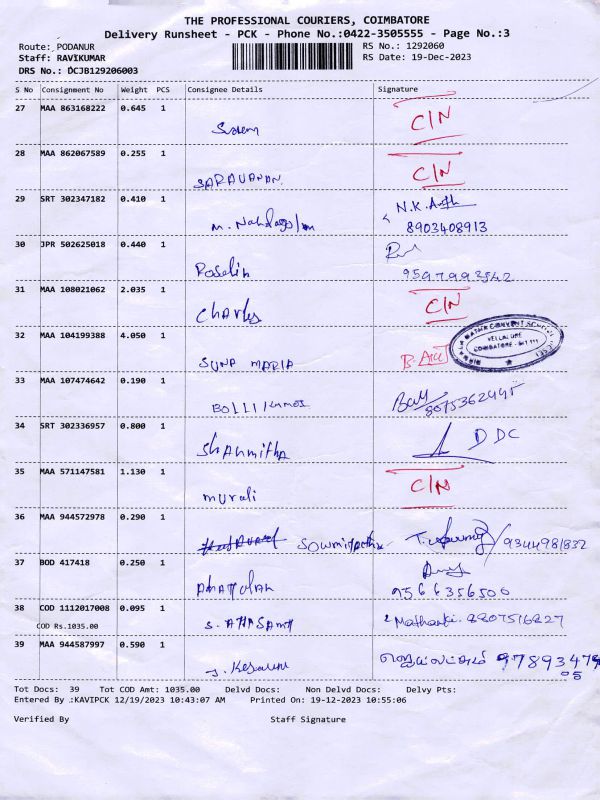 THE PROFESSIONAL COURIERS, COIMBATORE
Delivery Runsheet - PCK - Phone No.:0422-3505555 - Page No.:3
Route: PODANUR RS No.: 1292060
Staff: RAVIKUMAR RS Date: 19-Dec-2023
DRS No.: DCJB129206003
S No Consignment No Weight PCS Consignee Details Signature
27 MAA 863168222 0.645 1 C/N
28 MAA 862067589 0.255 1 C/N
SARAVANAN
29 SRT 302347182 0.410 1 N.K.
8903408913
30 JPR 502625018 0.440 1
Roselin 9597993542
31 MAA 108021062 2.035 1 C/N
Charles
32 MAA 104199388 4.050 1
SUNA MARIA
VELLALORE
COIMBATORE - 641 111
33 MAA 107474642 0.190 1
34 SRT 302336957 0.800 1 DDC
Shanmitha
35 MAA 571147581 1.130 1 C/N
murali
36 MAA 944572978 0.290 1
9344981832
37 BOD 417418 0.250 1
9566356500
38 COD 1112017008 0.095 1
COD Rs.1035.00 8807516827
39 MAA 944587997 0.590 1 97893479
05
Tot Docs: 39 Tot COD Amt: 1035.00 Delvd Docs: Non Delvd Docs: Delvy Pts:
Entered By :KAVIPCK 12/19/2023 10:43:07 AM Printed On: 19-12-2023 10:55:06
Verified By Staff Signature